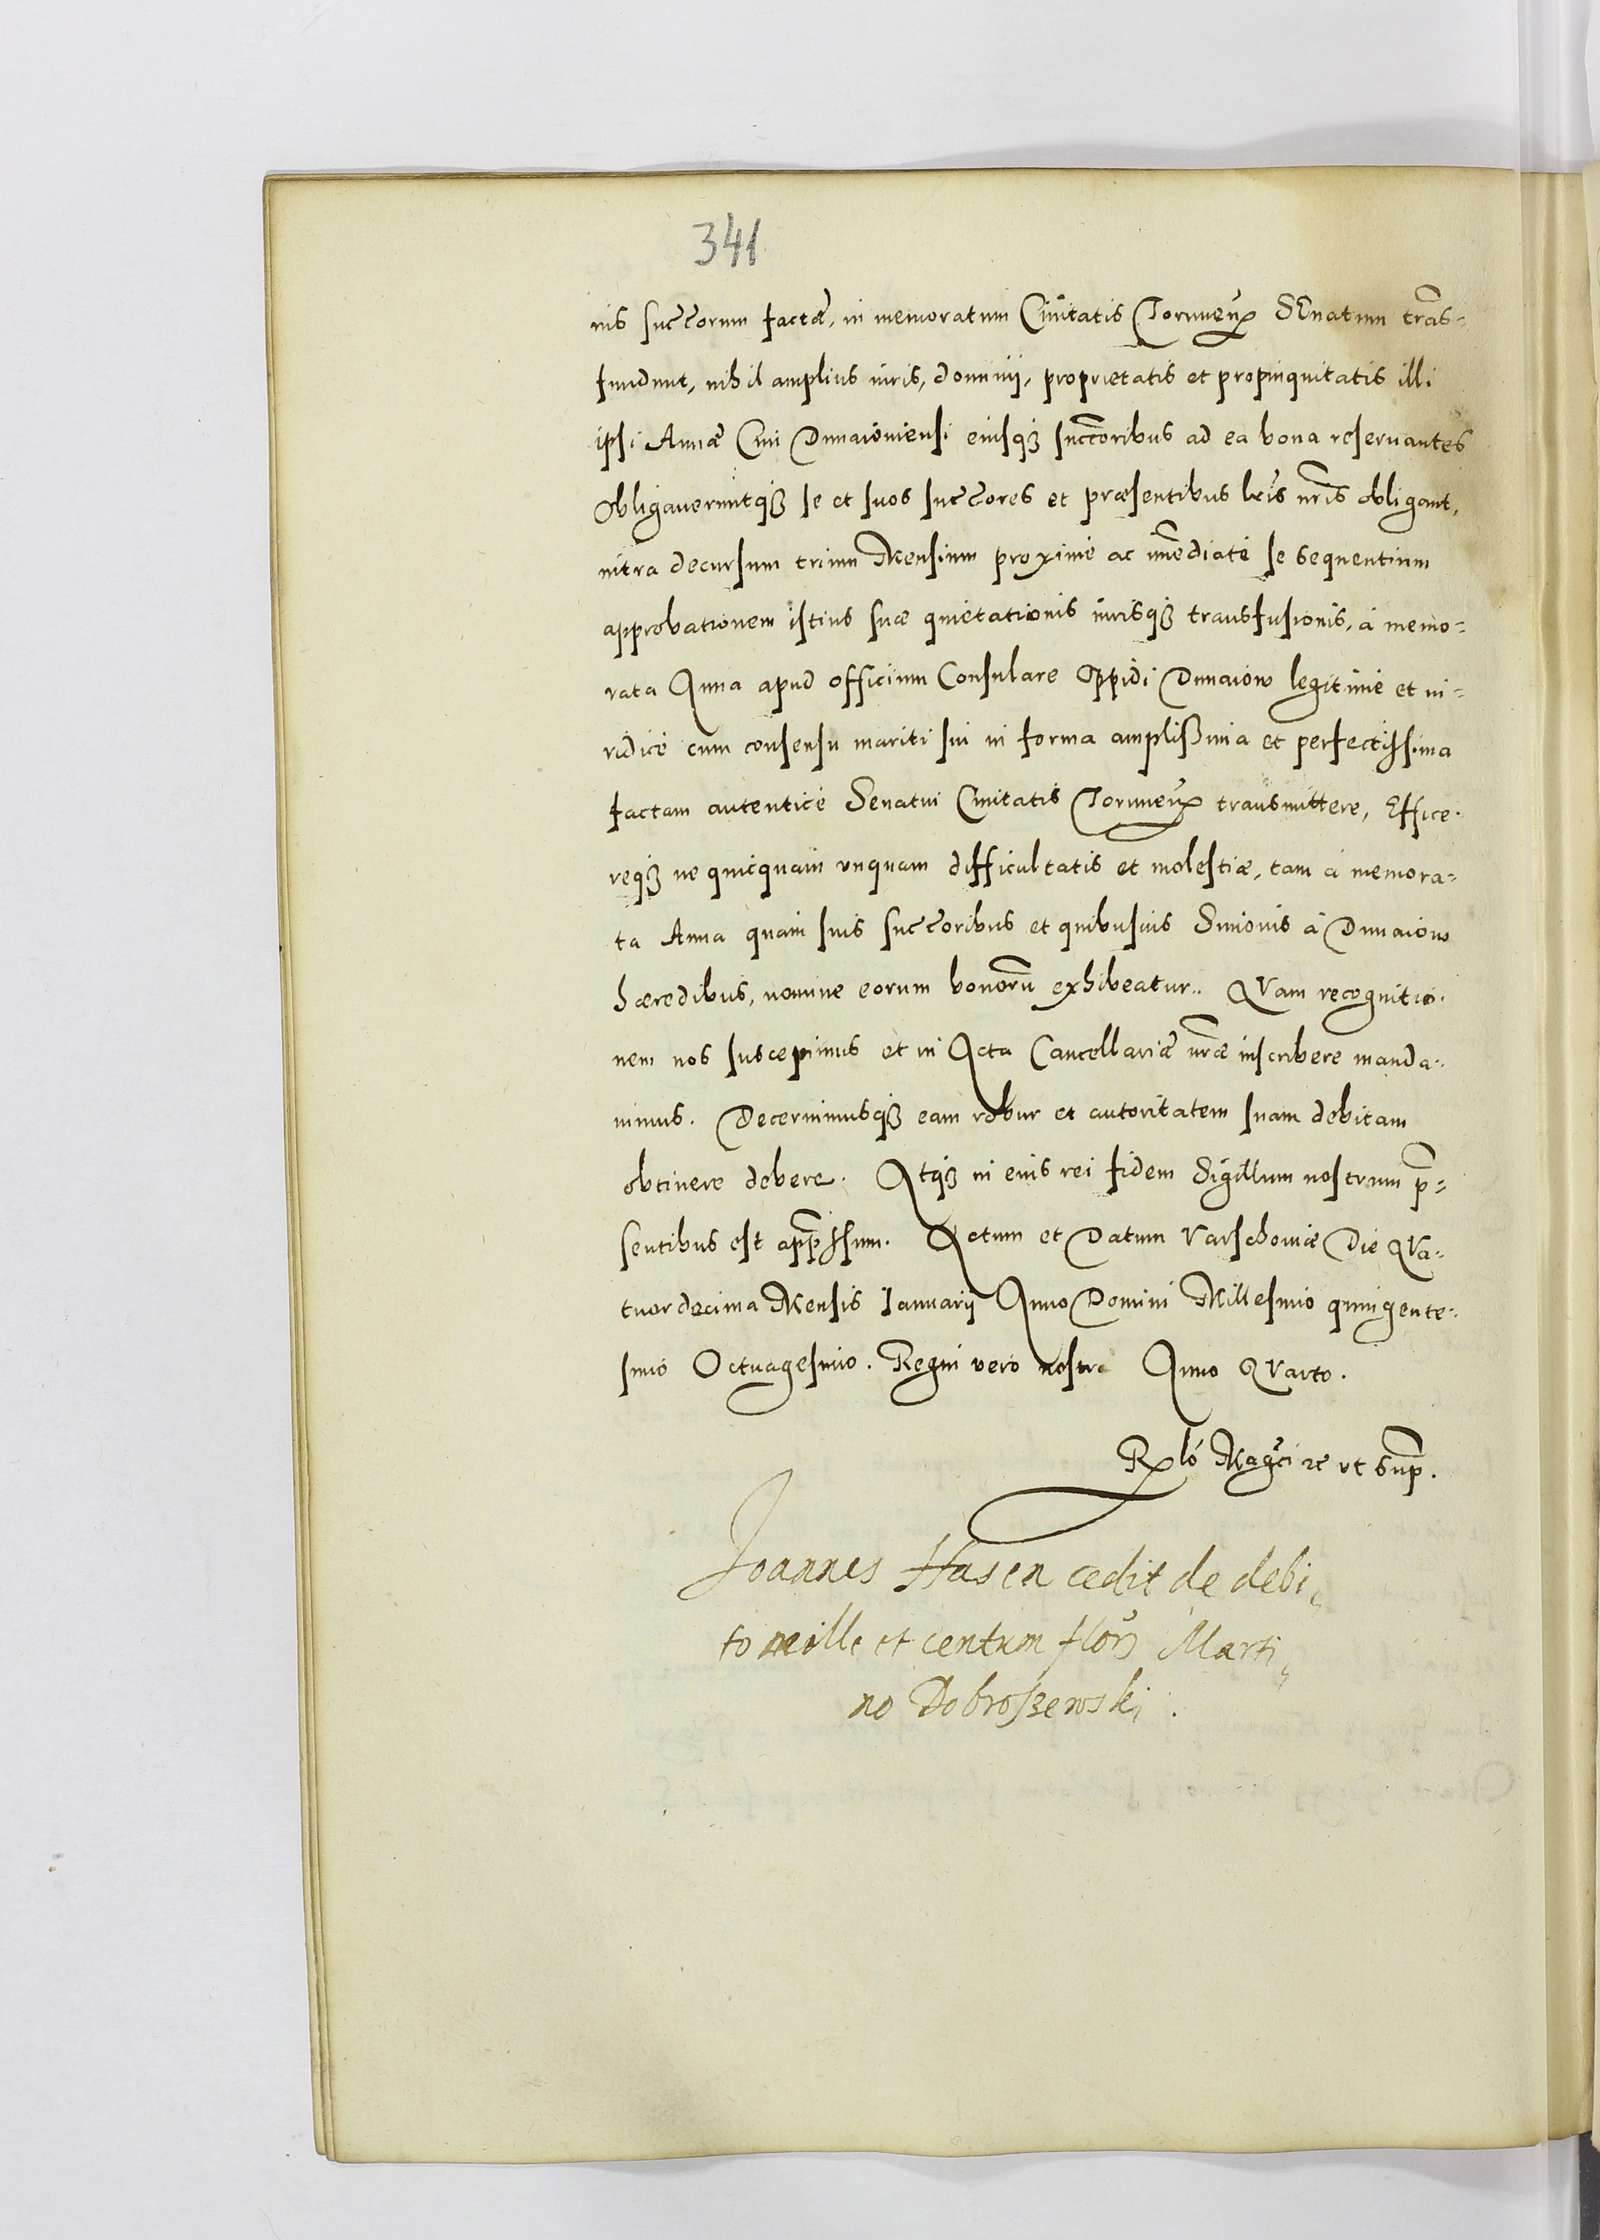 341
nis succorum factae, in memoratum Ciuitatis Toruneñ SEnatum trãs-
fundunt, nihil amplius iuris, dominij, proprietatis et propinquitatis illi
ipsi Annae Ciui Dunaiouiensi eiusq3 succoribus ad ea bona reseruantes
Obligaueruntq3 se et suos succores et praesentibus lrĩs nrĩs obligant,
intra decursum trium Mensium proximè ac im̃ediatè se sequentium
approbationem istius suae quietationis iurisq3 transfusionis, à memo-
rata Anna apud officium Consulare Oppidi Dunaiow legitimè et iu-
ridicè cum consensu mariti sui in forma amplissima et perfectissima
factam autenticè Senatui Ciuitatis Toruneñ transmittere, Effice-
req3 ne quicquam vnquam difficultatis et molestiae, tam à memora-
ta Anna quam suis succoribus et quibusuis Simonis à Dunaiow
haeredibus, nomine eorum bonorũ exhibeatur.. QVam recognitio-
nem nos suscepimus et in Acta Cancellariae nrãe inscribere manda-
uimus. Decernimusq3 eam robur et autoritatem suam debitam
obtinere debere. Atq3 in eius rei fidem Sigillum nostrum p̃-
sentibus est app̃ssum. Actum et Datum Varschouiae Die QVa-
tuordecima Mensis Ianuarij Anno Domini Millesimo quingente-
simo Octuagesimo. Regni vero nostri Anno QVarto.
Rlõ Magcı̃ rc vt sup̃.
Joannes Hasen cedit de debi,,
to mille et centum florı̃ Marti,,
no Dobroszewski.